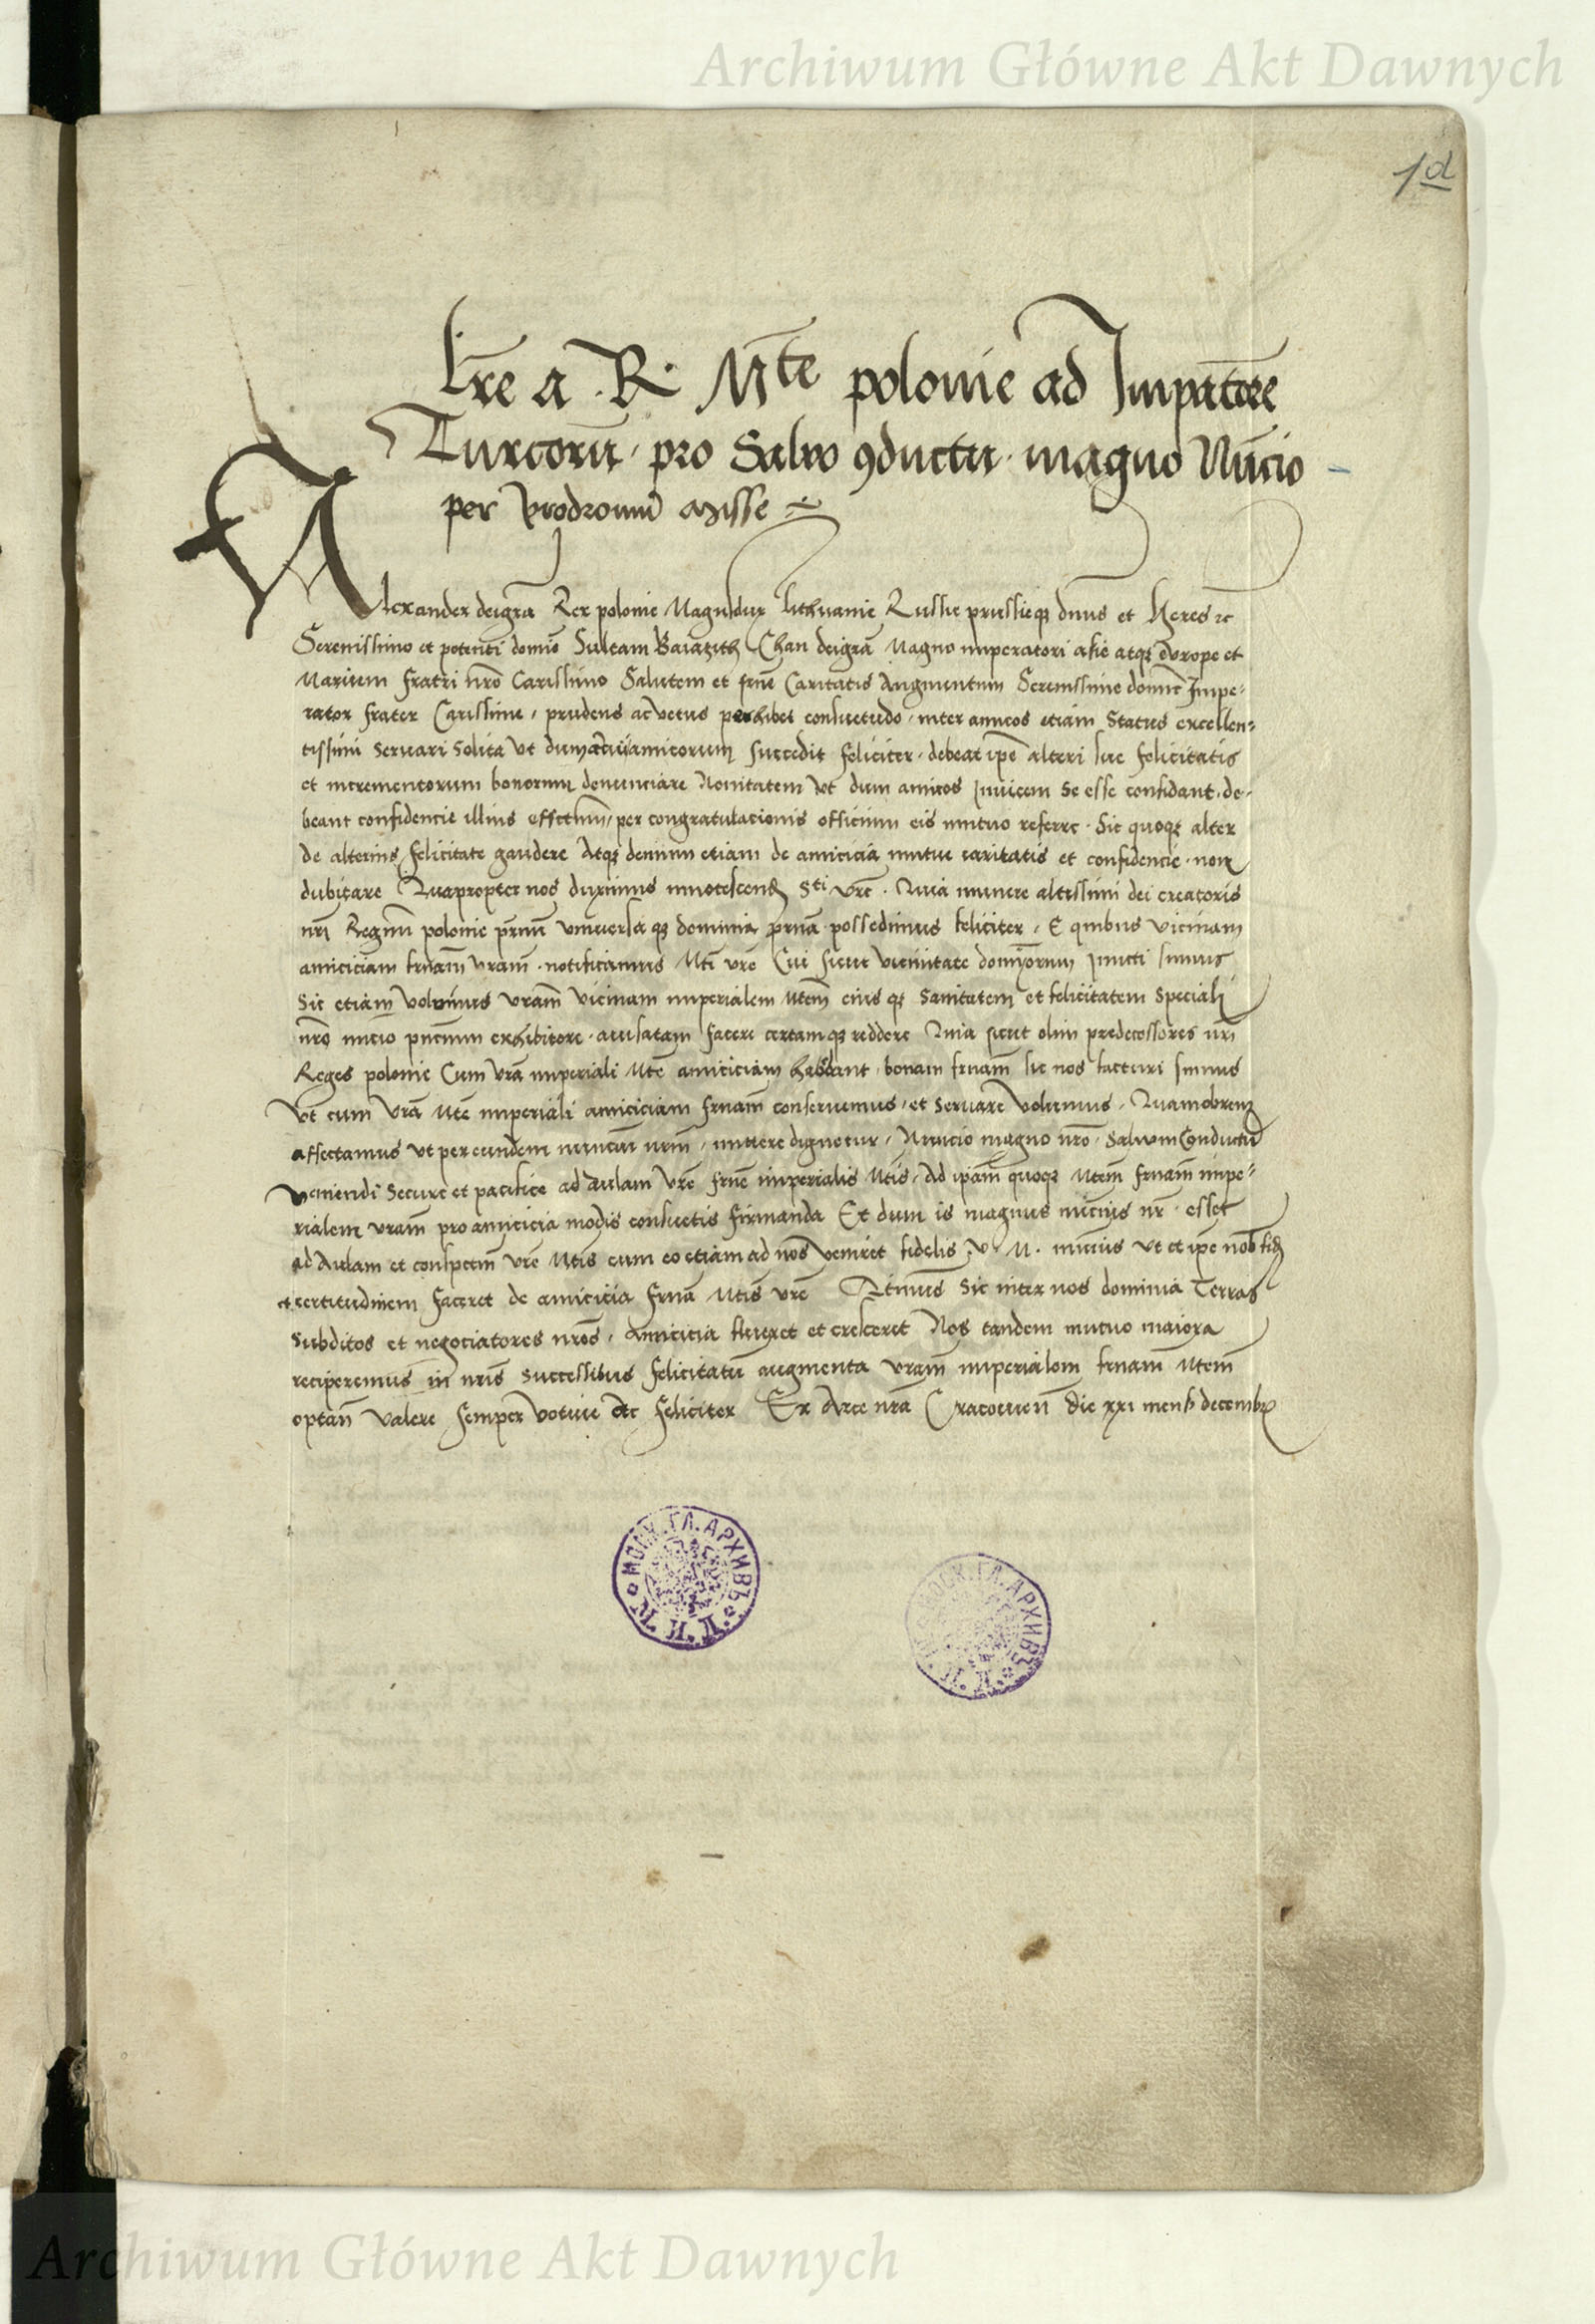 Archiwum Główne Akt Dawnych
1d
Lre a R. Mte polonie ad Impatore
Turcorū pro Salvo 9ductu magno Nūcio
per prodromū misse
Alexander dei gra Rex polonie Magnus dux Lithuanie Russie prussieqz dnus et Heres etc
Serenissimo et potenti domīo Sultam Baiazith Chan dei gra Magno imperatori asie atqz Europe et
Marium fratri nro Carissimo Salutem et frne Caritatis Augmentum Serenissime domīe Impe-
rator frater Carissime, prudens ac vetus perhibet consuetudo, inter amicos etiam Status excellen-
tissimi servari solita ut dum alicui amicorum succedit feliciter, debeat ipe alteri sue felicitatis
et incrementorum bonorum denunciare Novitatem ut dum amicos Invicem se esse confidant, de-
beant confidencie illius effectum, per congratulacionis officium eis mutuo referre. Sic quoqz alter
de alterius felicitate gaudere Atqz demum etiam de amicicia mutue caritatis et confidencie non
dubitare Quapropter nos duximus innotescend Sti vre. Quia munere altissimi dei creatoris
nri Regnū polonie prnū universaqz dominia prna possedimus feliciter, E quibus vicinam
amiciciam frnam vram notificamus Mti vre Cui sicut vicinitate dominiorum Juncti sumus
Sic etiam volumus vram vicinam imperialem Mtem eius qz Sanitatem et felicitatem speciali
nro nuncio pncium exhibitore avisatam facere certamqz reddere Quia sicut olim predecessores nri
Reges polonie Cum vra imperiali Mte amiciciam habebant bonam frnam sic nos facturi sumus
Ut cum vra Mte imperiali amiciciam frnam conservemus, et servare volumus, Quamobrem
affectamus ut per eundem nuncium nrm, mittere dignetur, Nuncio magno nro Salvum Conductū
veniendi secure et pacifice ad aulam vre frne imperialis Mtis, Ad ipam quoqz Mtem frnam impe-
rialem vram pro amicicia modis consuetis firmanda Et dum is magnus nuncius nr esset
ad Aulam et conspectum vre Mtis cum eo etiam ad nos veniret fidelis v. M. nuncius ut et ipe nob fid
et certitudinem faceret de amicicia frna Mtis vre Qtinus sic inter nos dominia Terras
subditos et negociatores nros, amicicia flueret et cresceret Nos tandem mutuo maiora
reciperemus in nris successibus felicitatū augmenta vram imperialem frnam Mtem
optan valere semper votive etc feliciter Ex Arce nra Cracovien die xxi mens decembr
МОСК. ГЛ. АРХИВЪ М. И. Д.
МОСК. ГЛ. АРХИВЪ М. И. Д.
Archiwum Główne Akt Dawnych